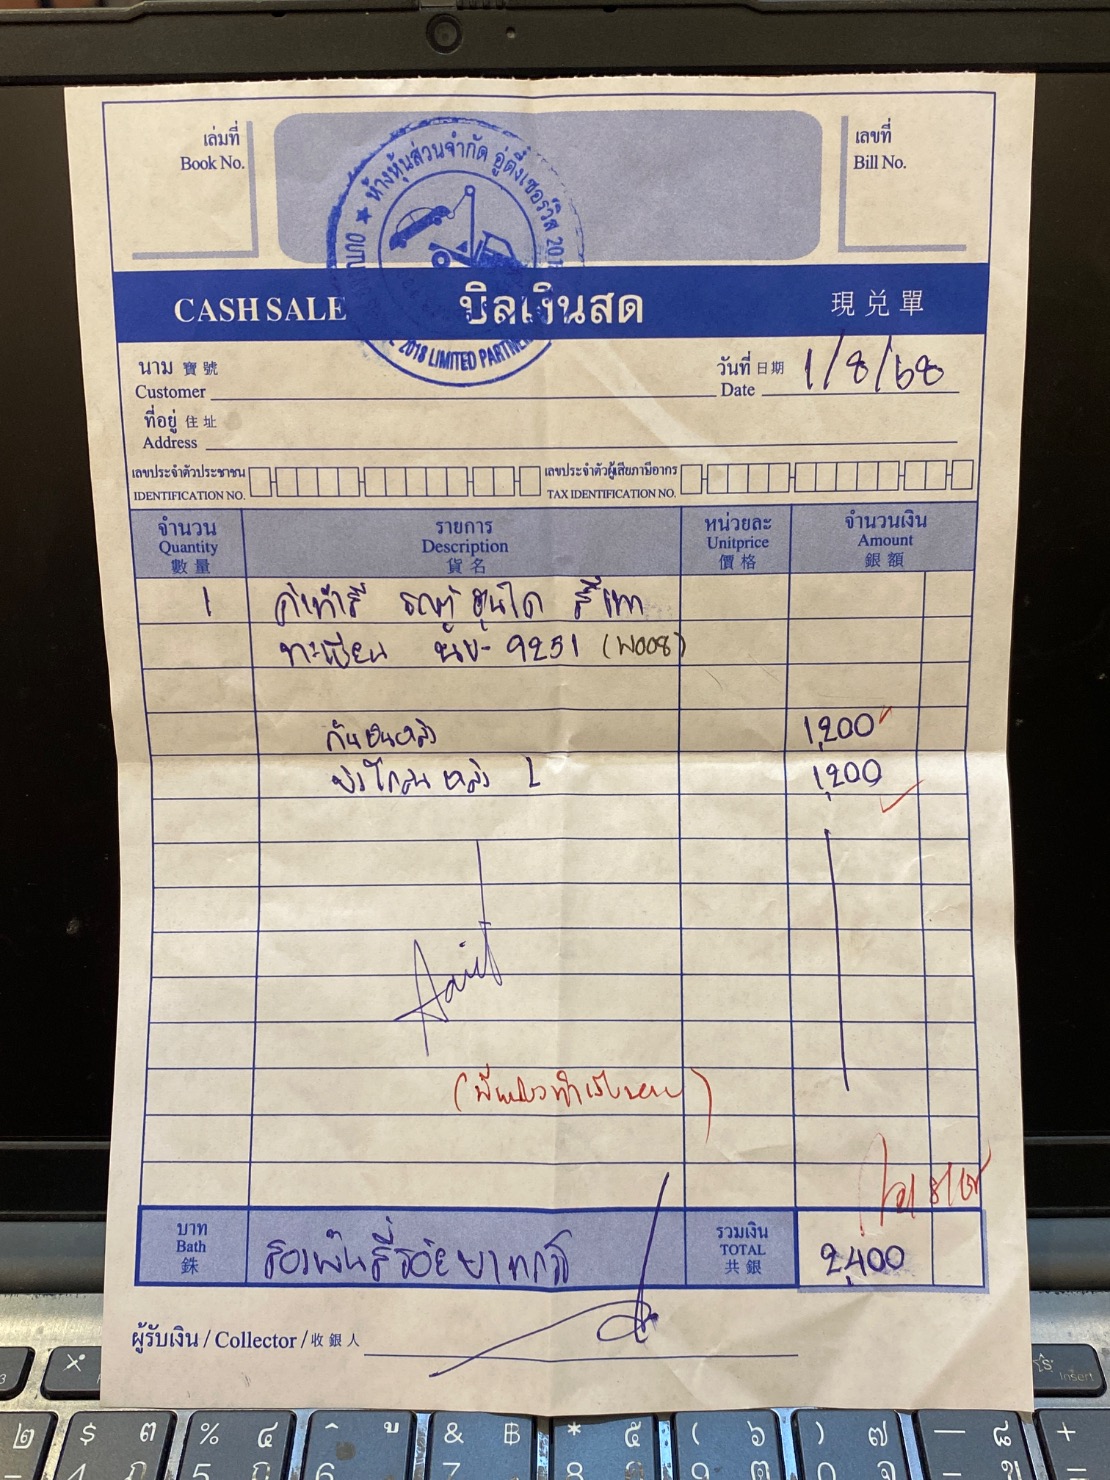 เล่มที่
Book No.
เลขที่
Bill No.
★ ห้างหุ้นส่วนจำกัด อู่ตึ๋งเซอร์วิส 201
2018 LIMITED PARTNER
CASH SALE บิลเงินสด 現兌單
นาม 寶號
Customer
วันที่ 日期
Date 1/8/68
ที่อยู่ 住址
Address
เลขประจำตัวประชาชน
IDENTIFICATION NO.
เลขประจำตัวผู้เสียภาษีอากร
TAX IDENTIFICATION NO.
จำนวน รายการ หน่วยละ จำนวนเงิน
Quantity Description Unitprice Amount
數量 貨名 價格 銀額
1 ค่าทำสี รถตู้ ฮุนได สีเทา
ทะเบียน นข- 9251 (W008)
กันชนหลัง 1,200
บังโคลน หลัง L 1,200
บาท
Bath
銖
สองพันสี่ร้อยบาทถ้วน
รวมเงิน
TOTAL
共銀
2,400
ผู้รับเงิน / Collector / 收銀人
$ ๓ % ๔ ^ ู & ฿ * ๕ ( ๖ ) ๗ — ๘ + ๙
Insert